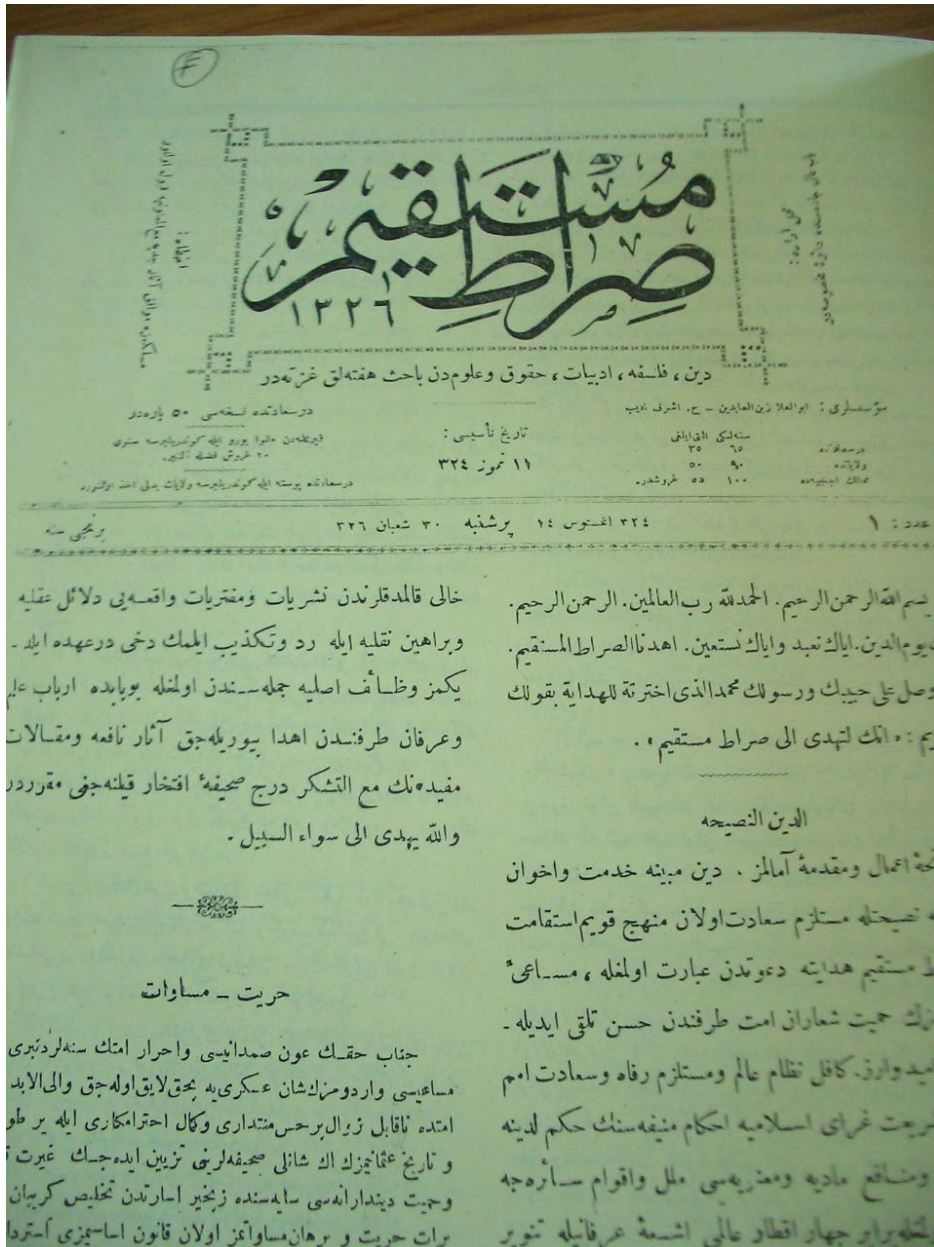 صراط مستقیم
١٣٢٦
دین ، فلسفه ، ادبیات ، حقوق وعلوم دن باحث هفته لق غزته در
مؤسسلری : ابوالعلا زین العابدین ــ ح . اشرف ادیب
سنه لکی التی ایلغی
درسعادتده ٦٥ ٣٥
ولایاتده ٩٠ ٥٠
ممالك اجنبیه ده ١٠٠ ٥٥ غروشدر .
تاریخ تأسیسی :
١١ تموز ٣٢٤
درسعادتده نسخه سی ٥٠ پاره در
قیرلمه دن مقوا بورو ایله کوندریلیرسه سنوی
٢٠ غروش فضله آلنیر .
درسعادتده پوسته ایله کوندریلیرسه ولایات بدلی اخذ اولنور
عدد : ١
٣٢٤ اغستوس ١٤ پرشنبه ٣٠ شعبان ٣٢٦
برنجی سنه
بسم الله الرحمن الرحیم . الحمدلله رب العالمین . الرحمن الرحیم .
یوم الدین . ایاك نعبد وایاك نستعین . اهدنا الصراط المستقیم .
وصل علی حبیبك ورسولك محمد الذی اخترته للهدایة بقولك
: «انك لتهدی الی صراط مستقیم» .
الدین النصیحه
اعمال ومقدمهٔ آمالمز . دین مبینه خدمت واخوان
نصیحتله مستلزم سعادت اولان منهج قویم استقامت
مستقیم هدایته دعوتدن عبارت اولمغله ، مساعیٔ
حمیت شعاران امت طرفندن حسن تلقی ایدیله ـ
امیدوارز . کافل نظام عالم ومستلزم رفاه وسعادت امم
شریعت غرای اسلامیه احکام منیفه سنك حکم لدینه
ومنافع مادیه ومعنویه سی ملل واقوام سائره جه
برابر چهار اقطار عالمی اشعهٔ عرفانیله تنویر
خالی قالمدقلرندن نشریات ومفتریات واقعه یی دلائل عقلیه
وبراهین نقلیه ایله رد وتکذیب ایلمك دخی درعهده ایلا ـ
یکمز وظائف اصلیه جمله سندن اولمغله بوبابده ارباب علم
وعرفان طرفندن اهدا بیوریله جق آثار نافعه ومقالات
مفیده نك مع التشکر درج صحیفهٔ افتخار قیلنه جغی مقرردر
والله یهدی الی سواء السبیل .
حریت ــ مساوات
جناب حقك عون صمدانیسی واحرار امتك سنه لردنبری
مساعیسی واردومزك شان عسکری یه بحق لایق اوله جق والی الابد
امتده ناقابل زوال بر حس منتداری وکمال احترامکاری ایله بر
و تاریخ عثمانیمزك اك شانلی صحیفه لرینی تزیین ایده جك غیرت
وحمیت دیندارانه سی سایه سنده زنجیر اسارتدن تخلیص کریبان
برات حریت و برهان مساواتمز اولان قانون اساسیمزی استرداد